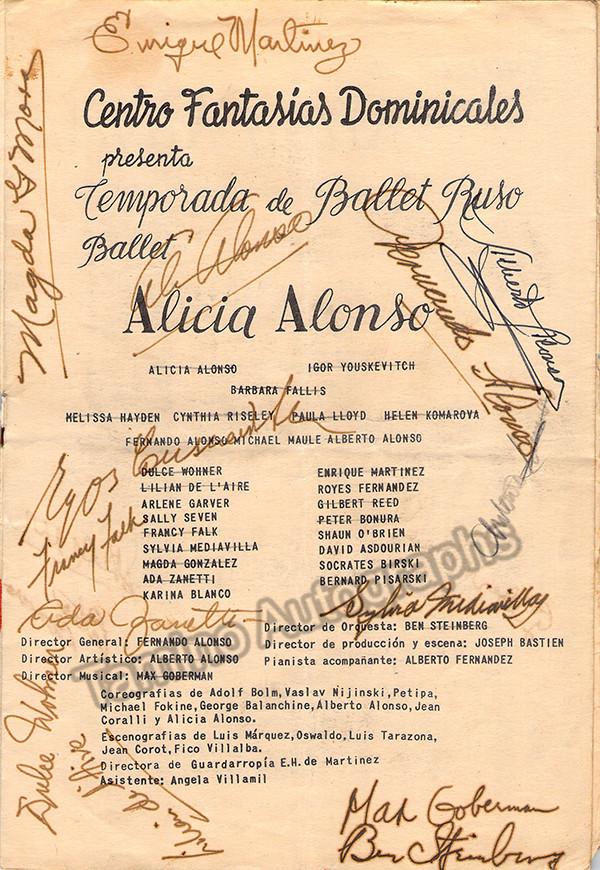 Enrique Martinez
Centro Fantasías Dominicales
presenta
Temporada de Ballet Ruso
Ballet
Alicia Alonso
Magda G Mora
A. Alonso
Fernando Alonso
Alberto Alonso
ALICIA ALONSO IGOR YOUSKEVITCH
BARBARA FALLIS
MELISSA HAYDEN CYNTHIA RISELEY PAULA LLOYD HELEN KOMAROVA
FERNANDO ALONSO MICHAEL MAULE ALBERTO ALONSO
DULCE WOHNER
LILIAN DE L'AIRE
ARLENE GARVER
SALLY SEVEN
FRANCY FALK
SYLVIA MEDIAVILLA
MAGDA GONZALEZ
ADA ZANETTI
KARINA BLANCO
ENRIQUE MARTINEZ
ROYES FERNANDEZ
GILBERT REED
PETER BONURA
SHAUN O'BRIEN
DAVID ASDOURIAN
SOCRATES BIRSKI
BERNARD PISARSKI
Francy Falk
Ada Zanetti
Sylvia Mediavilla
Tamino Autographs
Director General: FERNANDO ALONSO
Director Artístico: ALBERTO ALONSO
Director Musical: MAX GOBERMAN
Director de Orquesta: BEN STEINBERG
Director de producción y escena: JOSEPH BASTIEN
Pianista acompañante: ALBERTO FERNANDEZ
Coreografias de Adolf Bolm,Vaslav Nijinski,Petipa,
Michael Fokine,George Balanchine,Alberto Alonso,Jean
Coralli y Alicia Alonso.
Escenografias de Luis Márquez,Oswaldo,Luis Tarazona,
Jean Corot,Fico Villalba.
Directora de Guardarropía E.H. de Martinez
Asistente: Angela Villamil
Dulce Wohner
Lilian de l'Aire
Max Goberman
Ben Steinberg